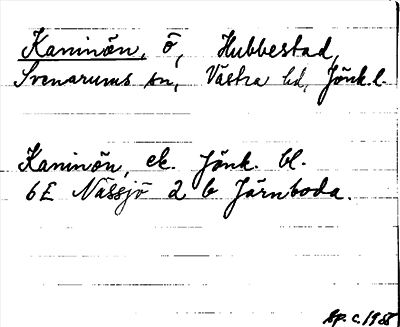 Kaninön, ö, Hubbestad,
Svenarums sn, Västra hd, Jönk.l.
Kaninön, ek. Jönk. bl.
6E Nässjö 2 b Järnboda.
Ap. c. 1955